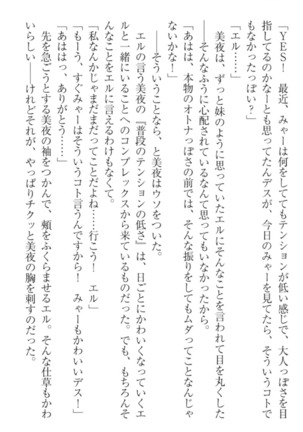 「YES! 最近、みゃーは何をしててもテンションが低い感じで、大人っぽさを目
指してるのかなーとも思ってたんデスが、今日のみゃーを見てたら、そういうコトで
もなかったっぽい?」
「エル……」
美夜は、ずっと妹のように思っていたエルにそんなことを言われて目を丸くした。
そんなふうに心配されているなんて思ってもいなかったから。
「あはは、本物のオトナっぽさの前では、そんな振りをしてもムダってことなんじゃ
ないかな!」
――そういうことなら、と美夜はウソをついた。
エルの言う美夜の『普段のテンションの低さ』は、日ごとにかわいくなっていくエ
ルと一緒にいることへのコンプレックスから来ているものだった。でも、もちろんそ
んなことをエルに言えるわけもなくて。
「私なんかじゃまだまだってことだよね……行こう! エル」
「もう、すぐみゃーはそういうコト言うんですから! みゃーもかわいいデス!」
「あはっ、ありがとう……」
先を急ごうとする美夜の袖をつかんで、頬をふくらませるエル。そんな仕草もかわ
いらしい――けれどそれが、やっぱりチクッと美夜の胸を刺すのだった。